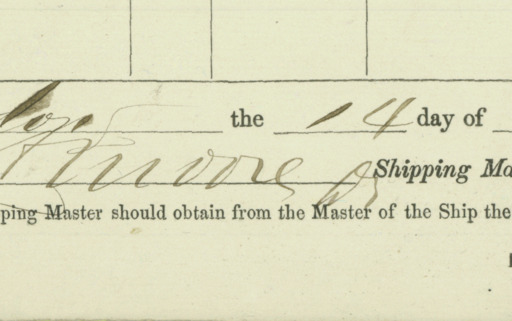 the 14 day of
Moore Shipping Ma
ping Master should obtain from the Master of the Ship the